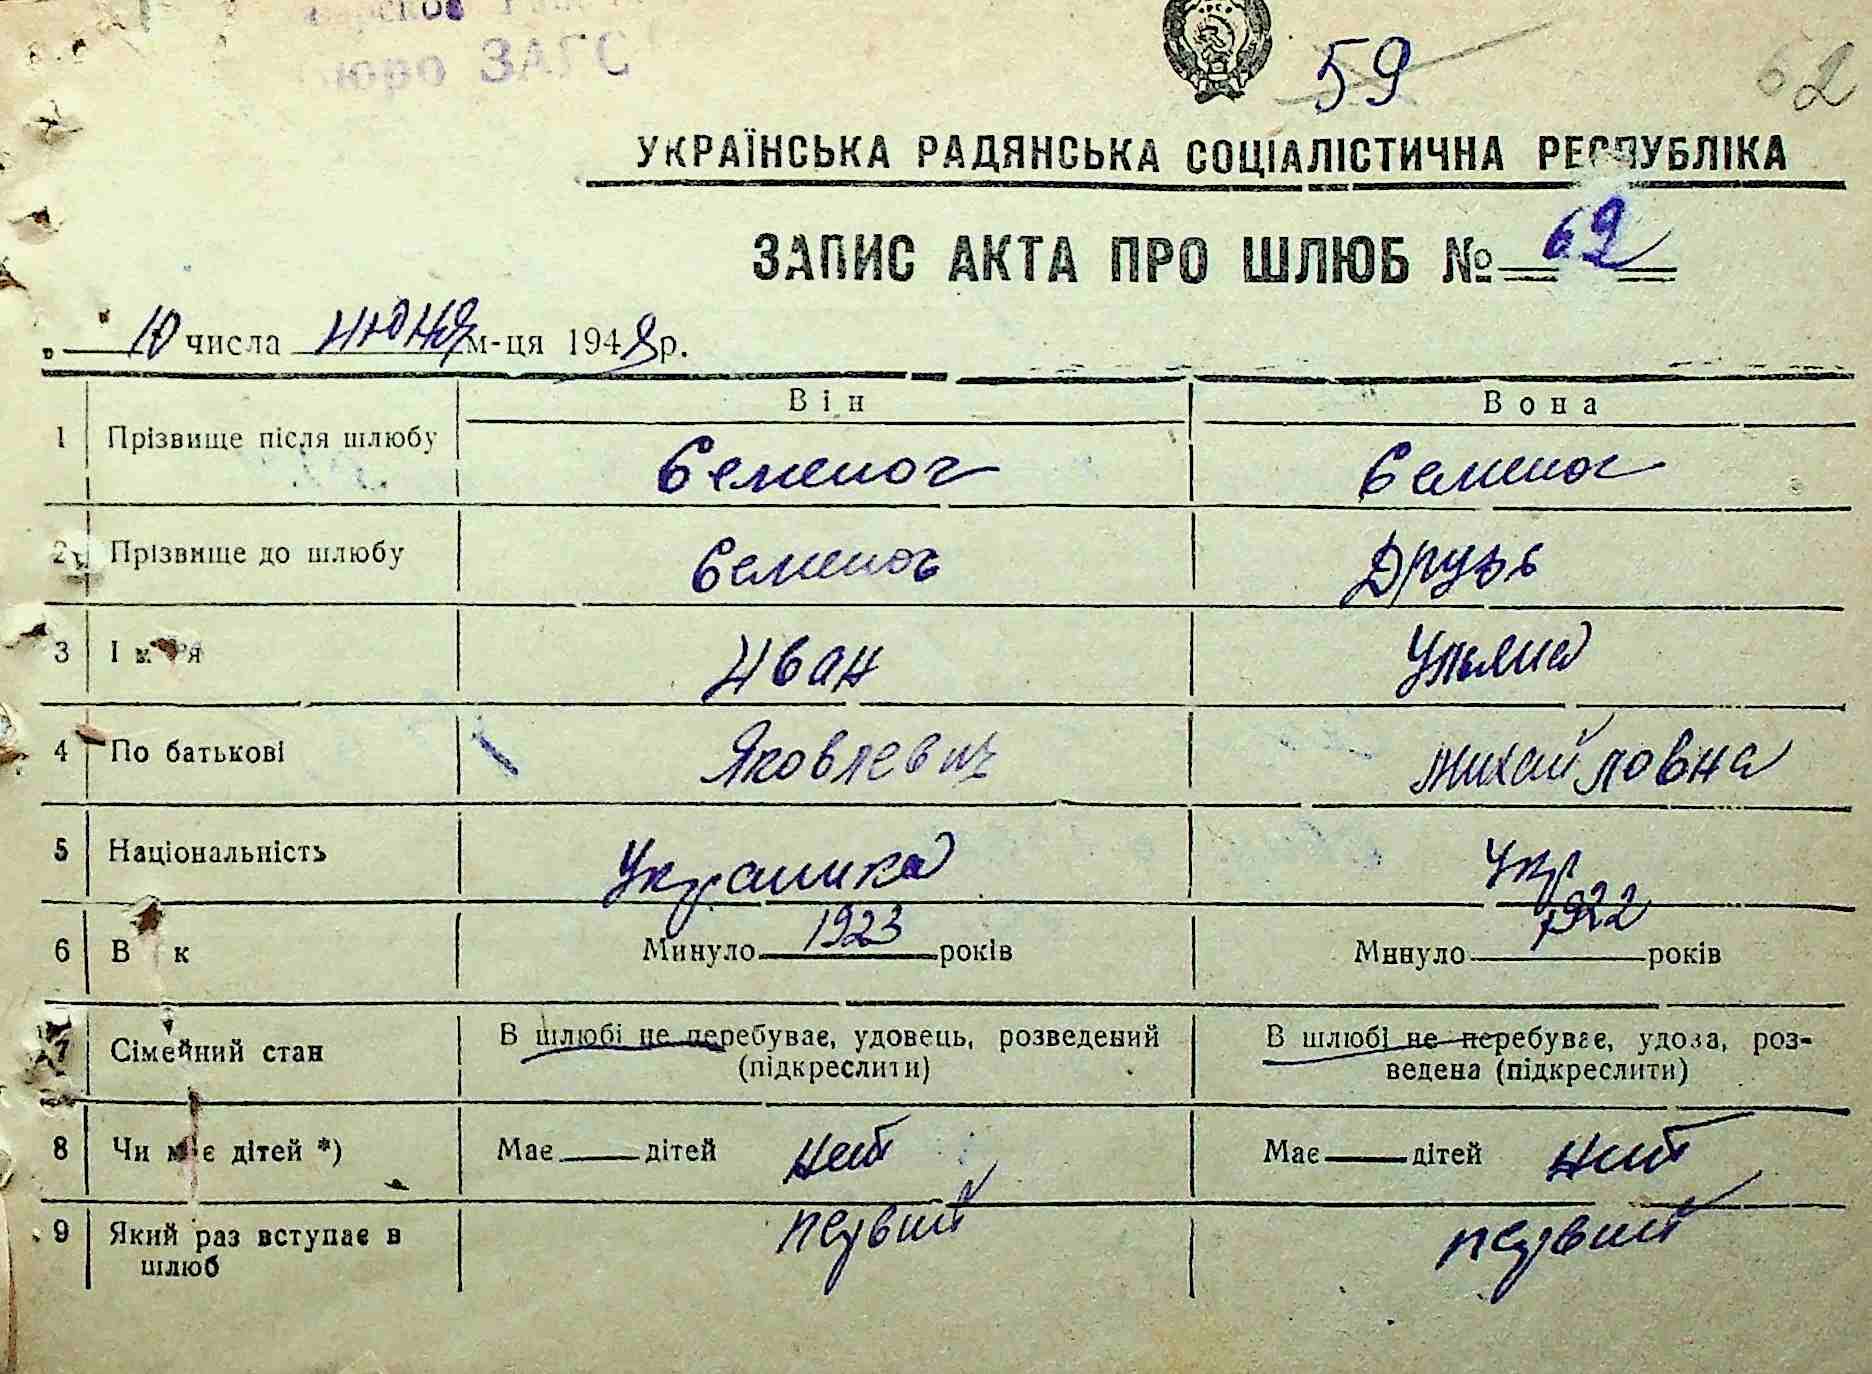 бюро ЗАГС
59
62
УКРАЇНСЬКА РАДЯНСЬКА СОЦІАЛІСТИЧНА РЕСПУБЛІКА
ЗАПИС АКТА ПРО ШЛЮБ № 62
10 числа июня м-ця 1948 р.
Він Вона
1 Прізвище після шлюбу Семеног Семеног
2 Прізвище до шлюбу Семеног Друзь
3 Ім'я Иван Ульяна
4 По батькові Яковлевич Михайловна
5 Національність Украинка Укр
6 Вік Минуло 1923 років Минуло 1922 років
7 Сімейний стан В шлюбі не перебуває, удовець, розведений В шлюбі не перебуває, удова, роз-
(підкреслити) ведена (підкреслити)
8 Чи має дітей *) Має дітей нет Має дітей нет
9 Який раз вступає в первий первий
шлюб